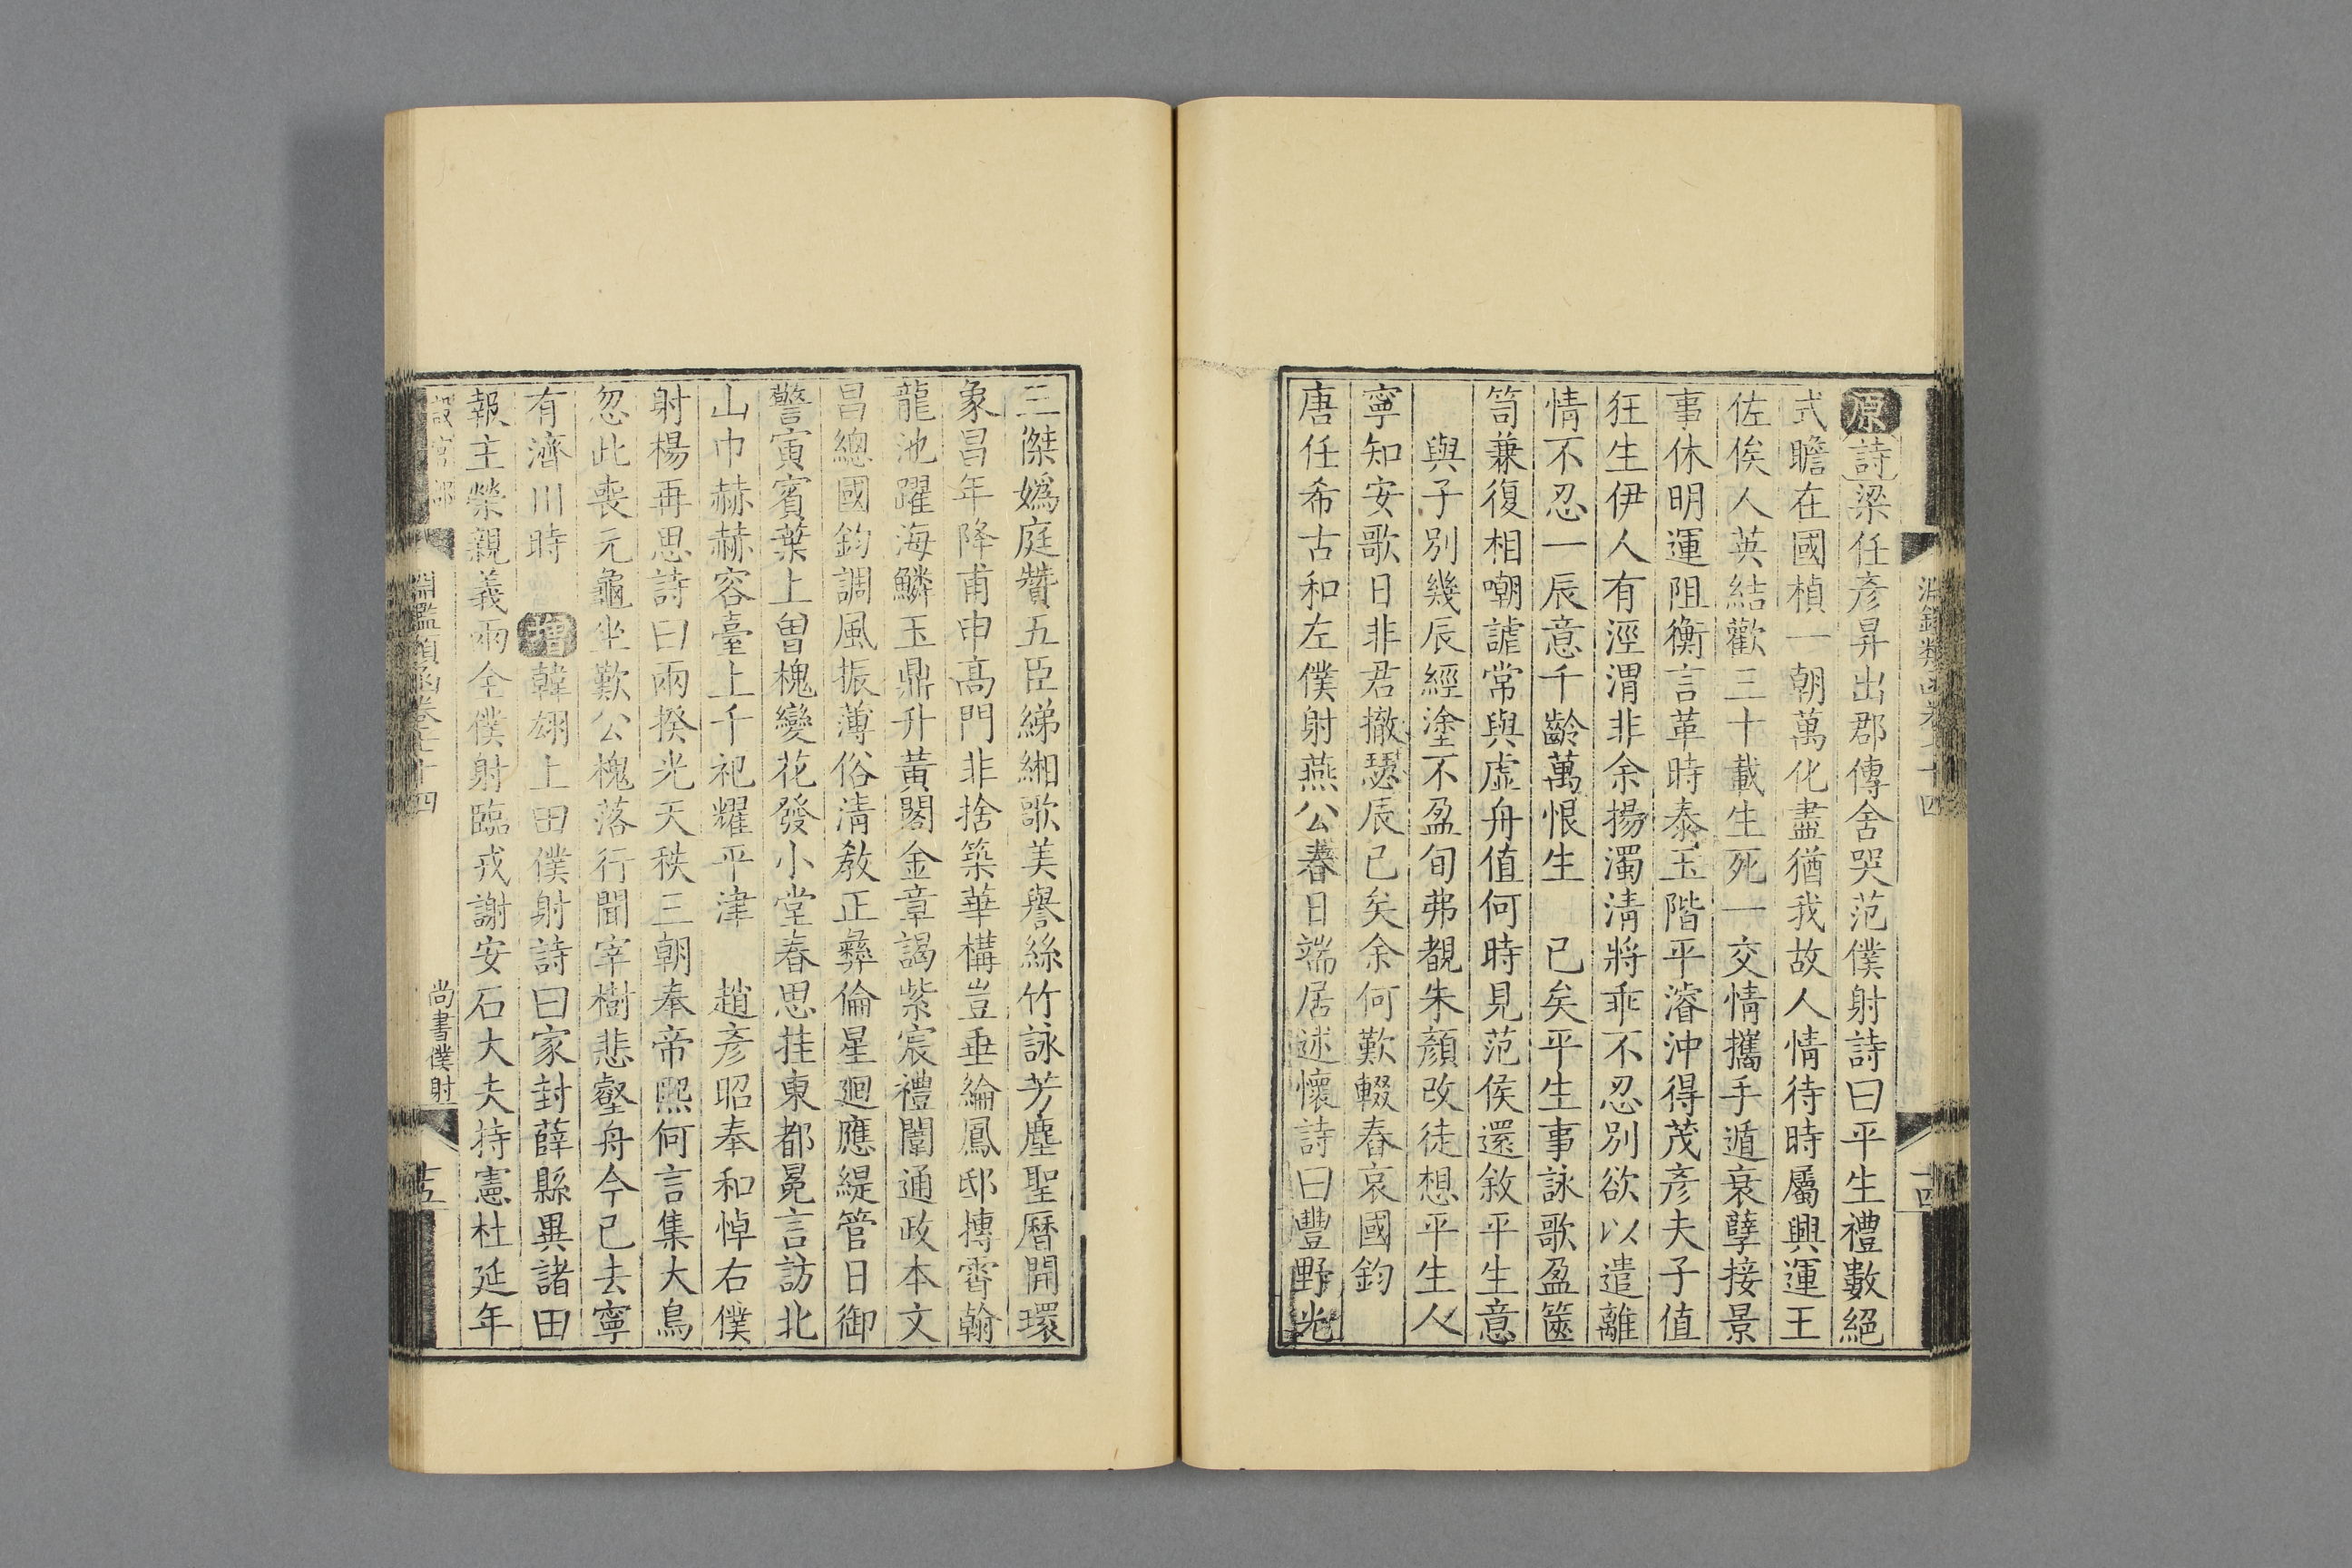 淵鑑類函卷七十四
十四
原詩梁任彥昇出郡傳舍哭范僕射詩曰平生禮數絕
式瞻在國楨一朝萬化盡猶我故人情待時屬興運王
佐俟人英結歡三十載生死一交情攜手遁衰孽接景
事休明運阻衡言革時泰玉階平濬沖得茂彥夫子值
狂生伊人有涇渭非余揚濁清將乖不忍別欲以遣離
情不忍一辰意千齡萬恨生 已矣平生事詠歌盈篋
笥兼復相嘲謔常與虛舟值何時見范侯還敘平生意
與子別幾辰經塗不盈旬弗覩朱顏改徒想平生人
寧知安歌日非君撤瑟辰已矣余何歎輟舂哀國鈞
唐任希古和左僕射燕公春日端居述懷詩曰豐野光
三傑媯庭贊五臣綈緗歌美譽絲竹詠芳塵聖曆開環
象昌年降甫申高門非捨築華構豈垂綸鳳邸摶霄翰
龍池躍海鱗玉鼎升黃閣金章謁紫宸禮闈通政本文
昌總國鈞調風振薄俗清教正彝倫星迴應緹管日御
警寅賓葉上曽槐變花發小堂春思挂東都冕言訪北
山巾赫赫容臺上千祀耀平津 趙彥昭奉和悼右僕
射楊再思詩曰兩揆光天秩三朝奉帝熙何言集大鳥
忽此喪元龜坐歎公槐落行聞宰樹悲壑舟今已去寧
有濟川時 增韓翃上田僕射詩曰家封薛縣異諸田
報主榮親義兩全僕射臨戎謝安石大夫持憲杜延年
淵鑑類函卷七十四
設官部
尚書僕射
十五